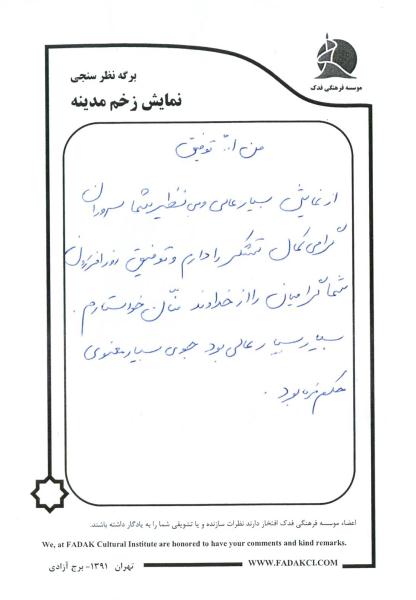 موسسه فرهنگی فدک
برگه نظر سنجی
نمایش زخم مدینه
من ا... توفیق
از نمایش بسیار عالی و بی نظیر شما سروران
گرامی کمال تشکر را دارم و توفیق روز افزون
شما گرامیان را از خداوند منّان خواستارم.
بسیار بسیار عالی بود جوی بسیار معنوی
حکم فرما بود.
اعضاء موسسه فرهنگی فدک افتخار دارند نظرات سازنده و یا تشویقی شما را به یادگار داشته باشند.
We, at FADAK Cultural Institute are honored to have your comments and kind remarks.
تهران ۱۳۹۱- برج آزادی
WWW.FADAKCI.COM